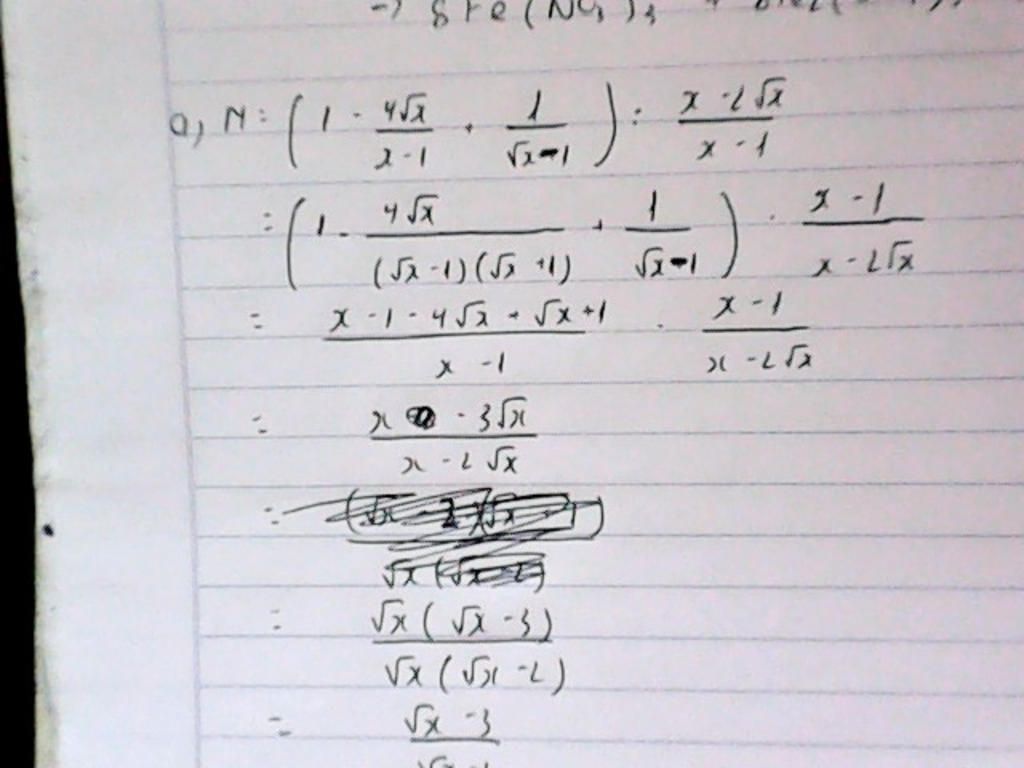 a, N = ( 1 - 4√x / x - 1 + 1 / √x - 1 ) : x - 2√x / x - 1
= ( 1 - 4√x / (√x - 1)(√x + 1) + 1 / √x - 1 ) . x - 1 / x - 2√x
= x - 1 - 4√x + √x + 1 / x - 1 . x - 1 / x - 2√x
= x - 3√x / x - 2√x
= √x ( √x - 3) / √x ( √x - 2)
= √x - 3